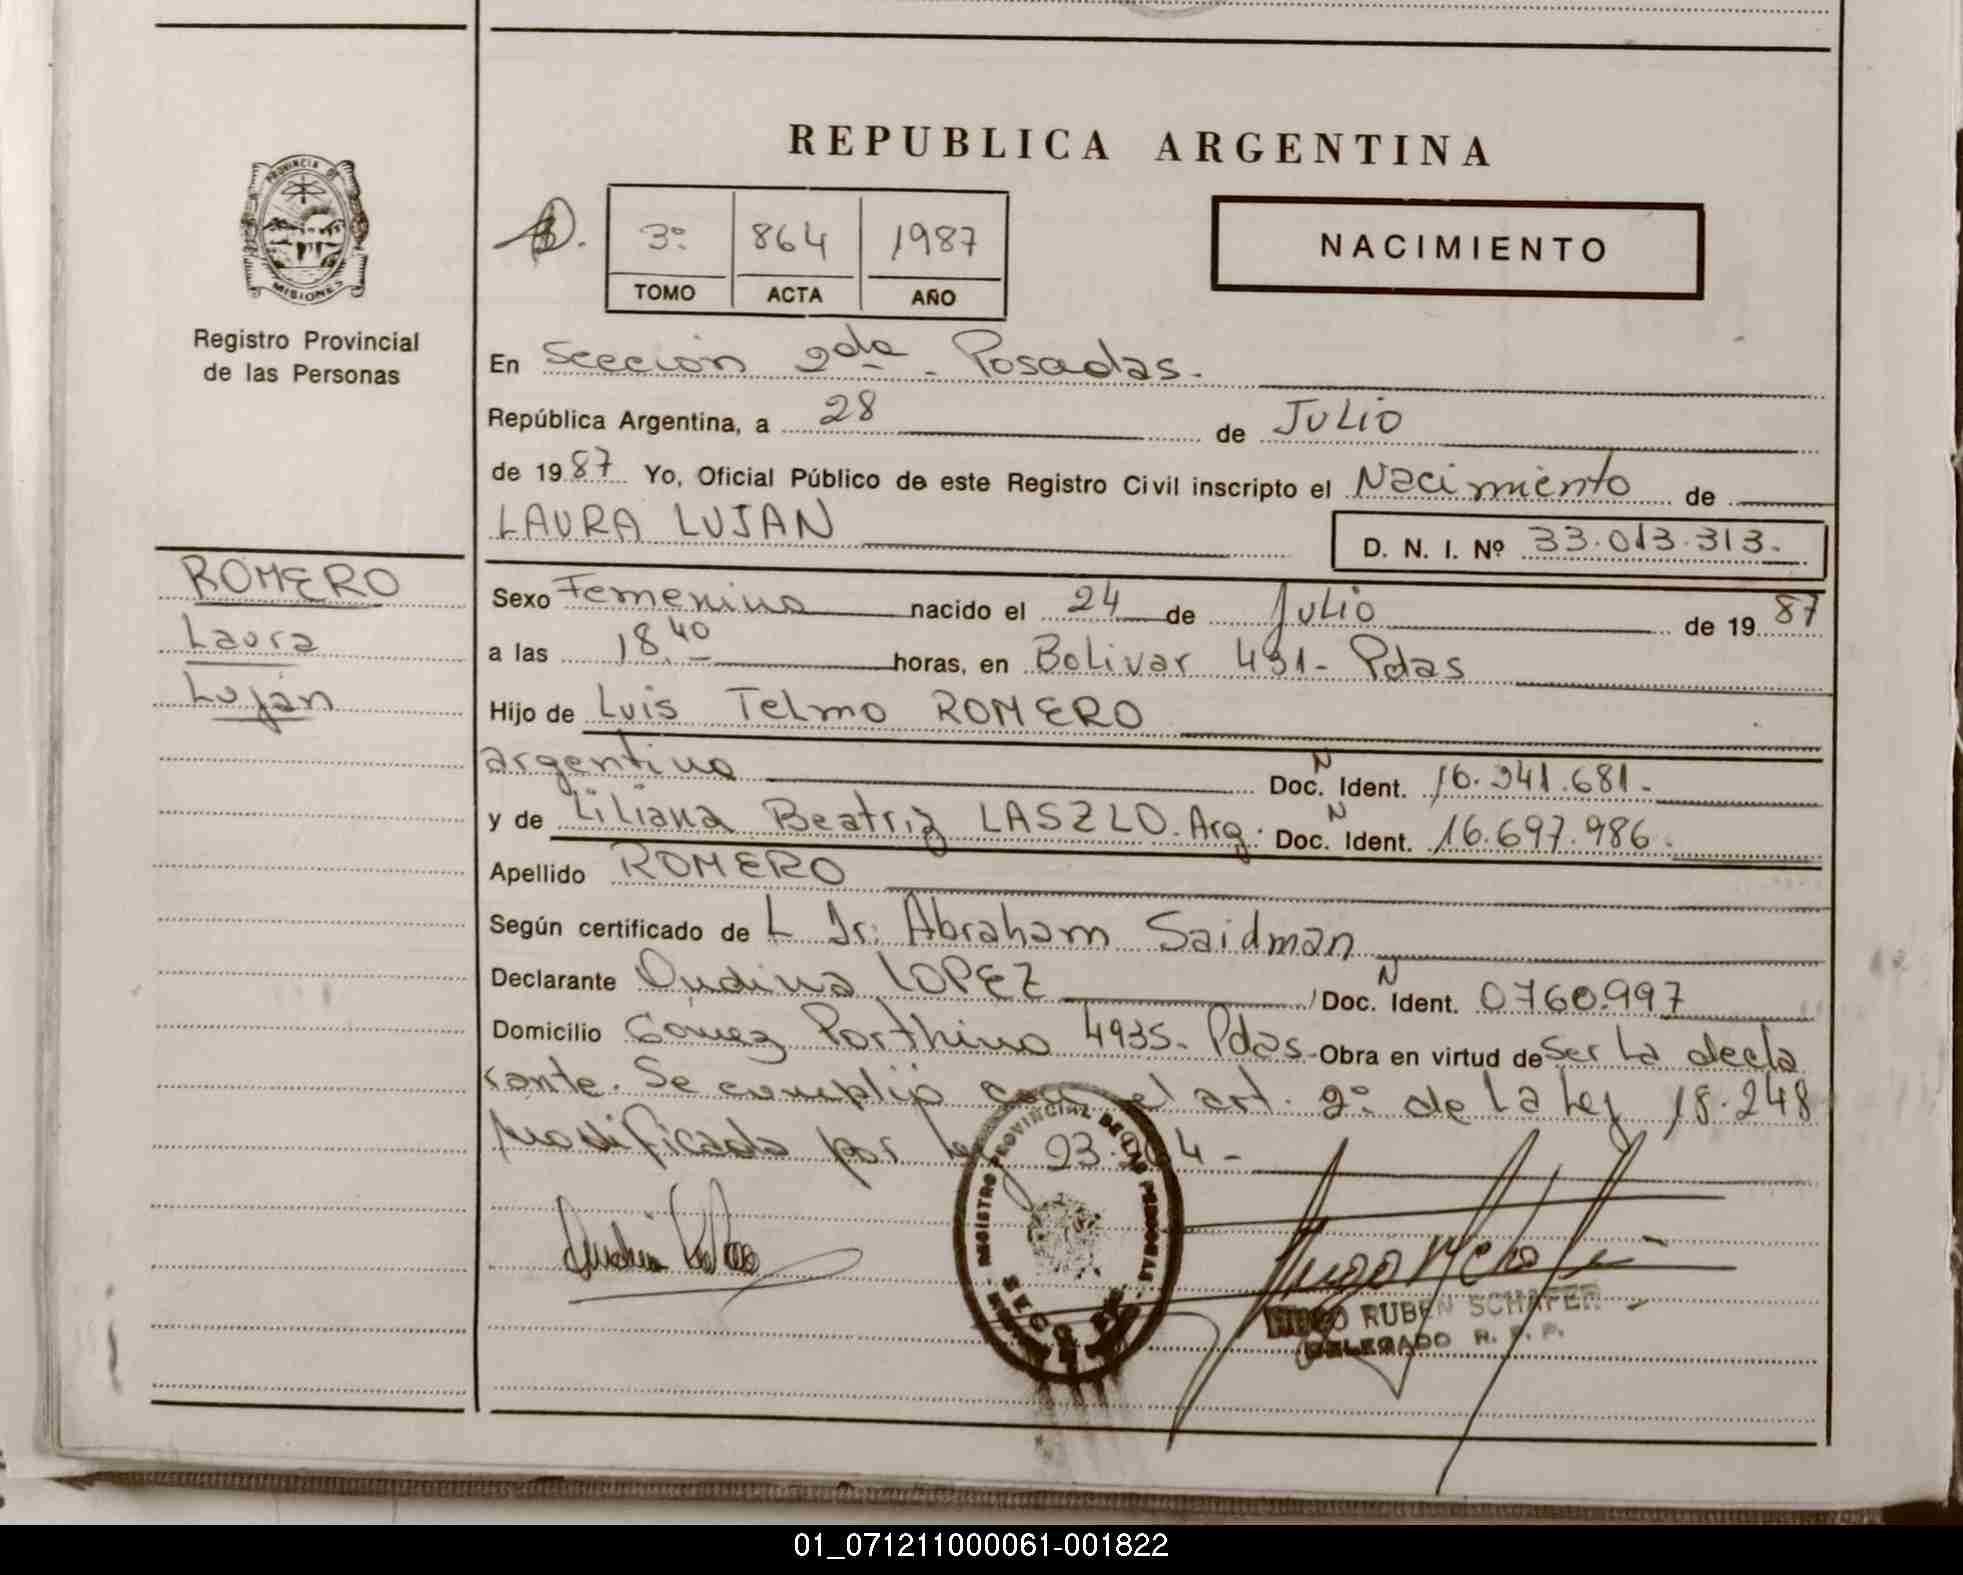 REPUBLICA ARGENTINA
PROVINCIA DE
MISIONES
Registro Provincial
de las Personas
3º 864 1987
TOMO ACTA AÑO
NACIMIENTO
En Sección 2da - Posadas.
República Argentina, a 28 de JULIO
de 1987 Yo, Oficial Público de este Registro Civil inscripto el Nacimiento de
LAURA LUJAN
D. N. I. Nº 33.013.313.
ROMERO
Laura
Luján
Sexo Femenino nacido el 24 de Julio de 1987
a las 18.40 horas, en Bolivar 431- Pdas
Hijo de Luis Telmo ROMERO
argentino Doc. N Ident. 16.341.681.
y de Liliana Beatriz LASZLO. Arg. Doc. N Ident. 16.697.986.
Apellido ROMERO
Según certificado de L Dr. Abraham Saidman
Declarante LOPEZ Doc. N Ident. 0760.997
Domicilio Gómez Porthino 4935- Pdas. Obra en virtud de Ser la decla
rante. Se cumplió con el art. 2º de La Ley 18.248
Modificado por Ley 23. 4-
REGISTRO PROVINCIAL DE LAS PERSONAS
HUGO RUBEN SCHAFER
DELEGADO R. P. P.
01_071211000061-001822